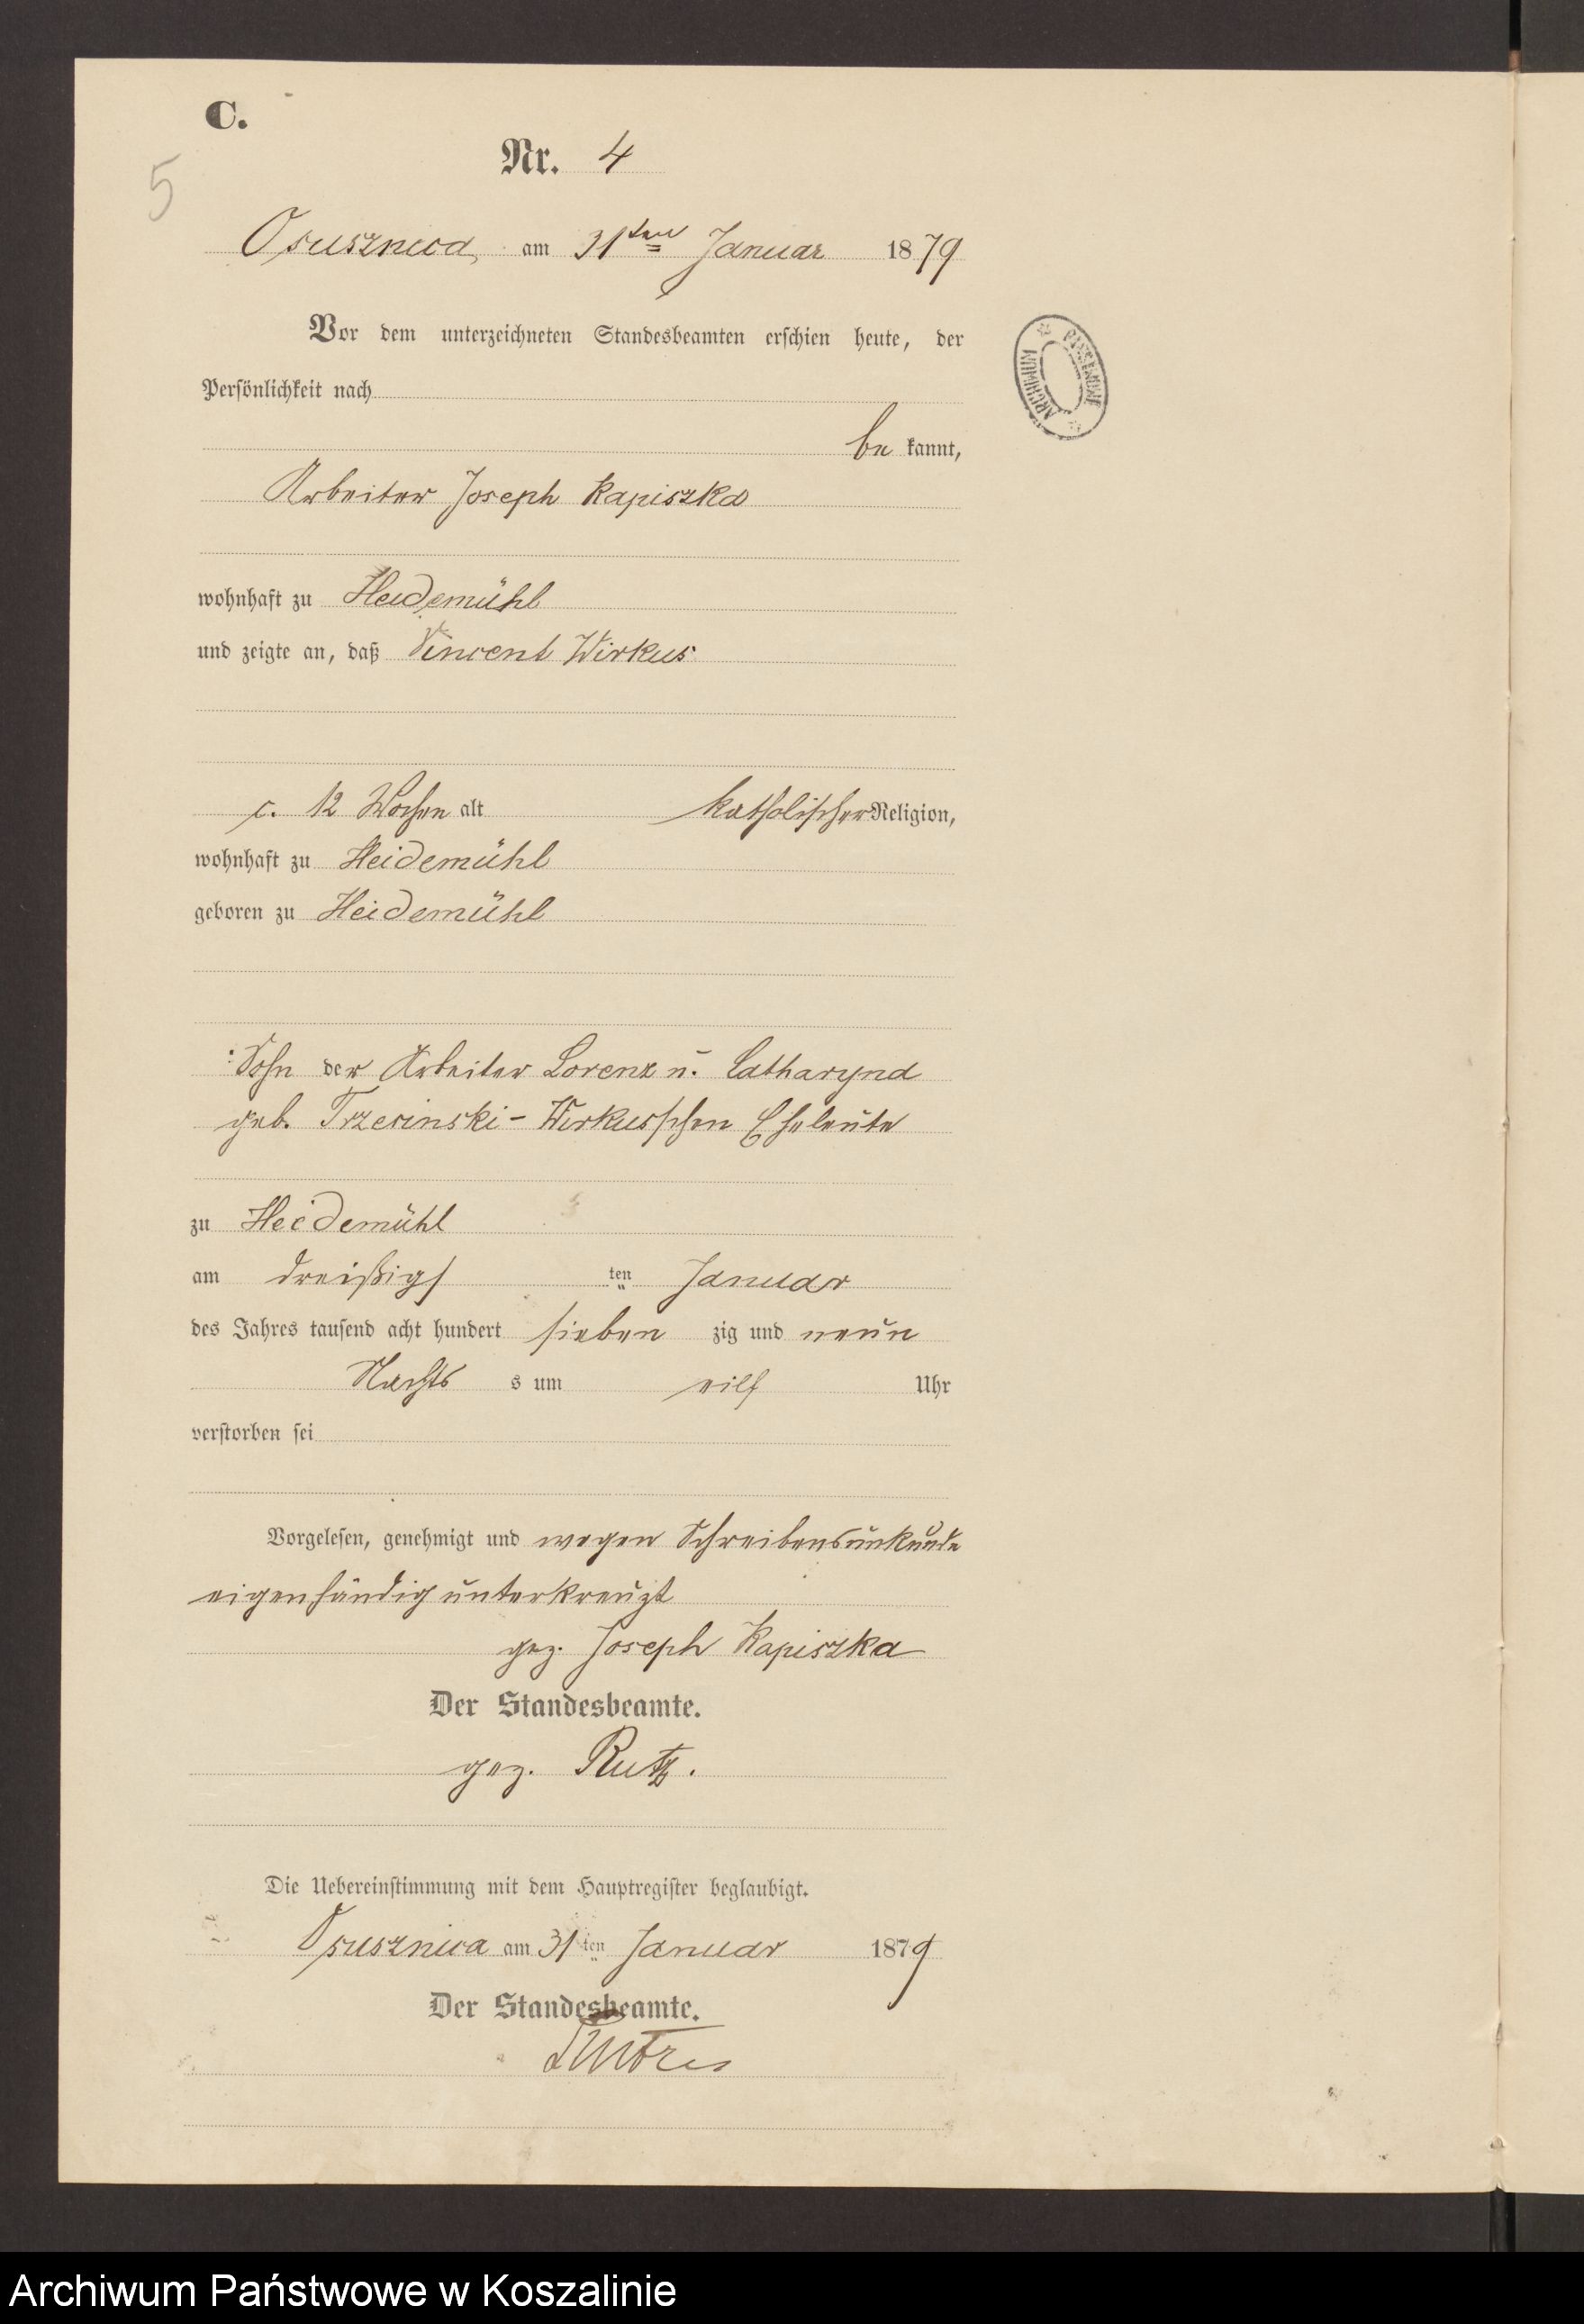 C.
5
Nr. 4
Osusznica, am 31ten Januar 1879
Vor dem unterzeichneten Standesbeamten erschien heute, der
Persönlichkeit nach
be kannt,
Arbeiter Joseph Kapiszka
wohnhaft zu Heidemühl
und zeigte an, daß Vincent Wirkus
c. 12 Wochen alt katholischer Religion,
wohnhaft zu Heidemühl
geboren zu Heidemühl
Sohn der Arbeiter Lorenz u. Catharyna
geb. Trzecinski-Wirkusschen Eheleute
zu Heidemühl
am dreißigs ten Januar
des Jahres tausend acht hundert sieben zig und neun
Nachts s um eilf Uhr
verstorben sei
Vorgelesen, genehmigt und wegen Schreibensunkunde
eigenhändig unterkreuzt
gez. Joseph Kapiszka
Der Standesbeamte.
gez. Rutz.
Die Uebereinstimmung mit dem Hauptregister beglaubigt.
Osusznica am 31 ten Januar 1879
Der Standesbeamte.
Archiwum Państwowe w Koszalinie